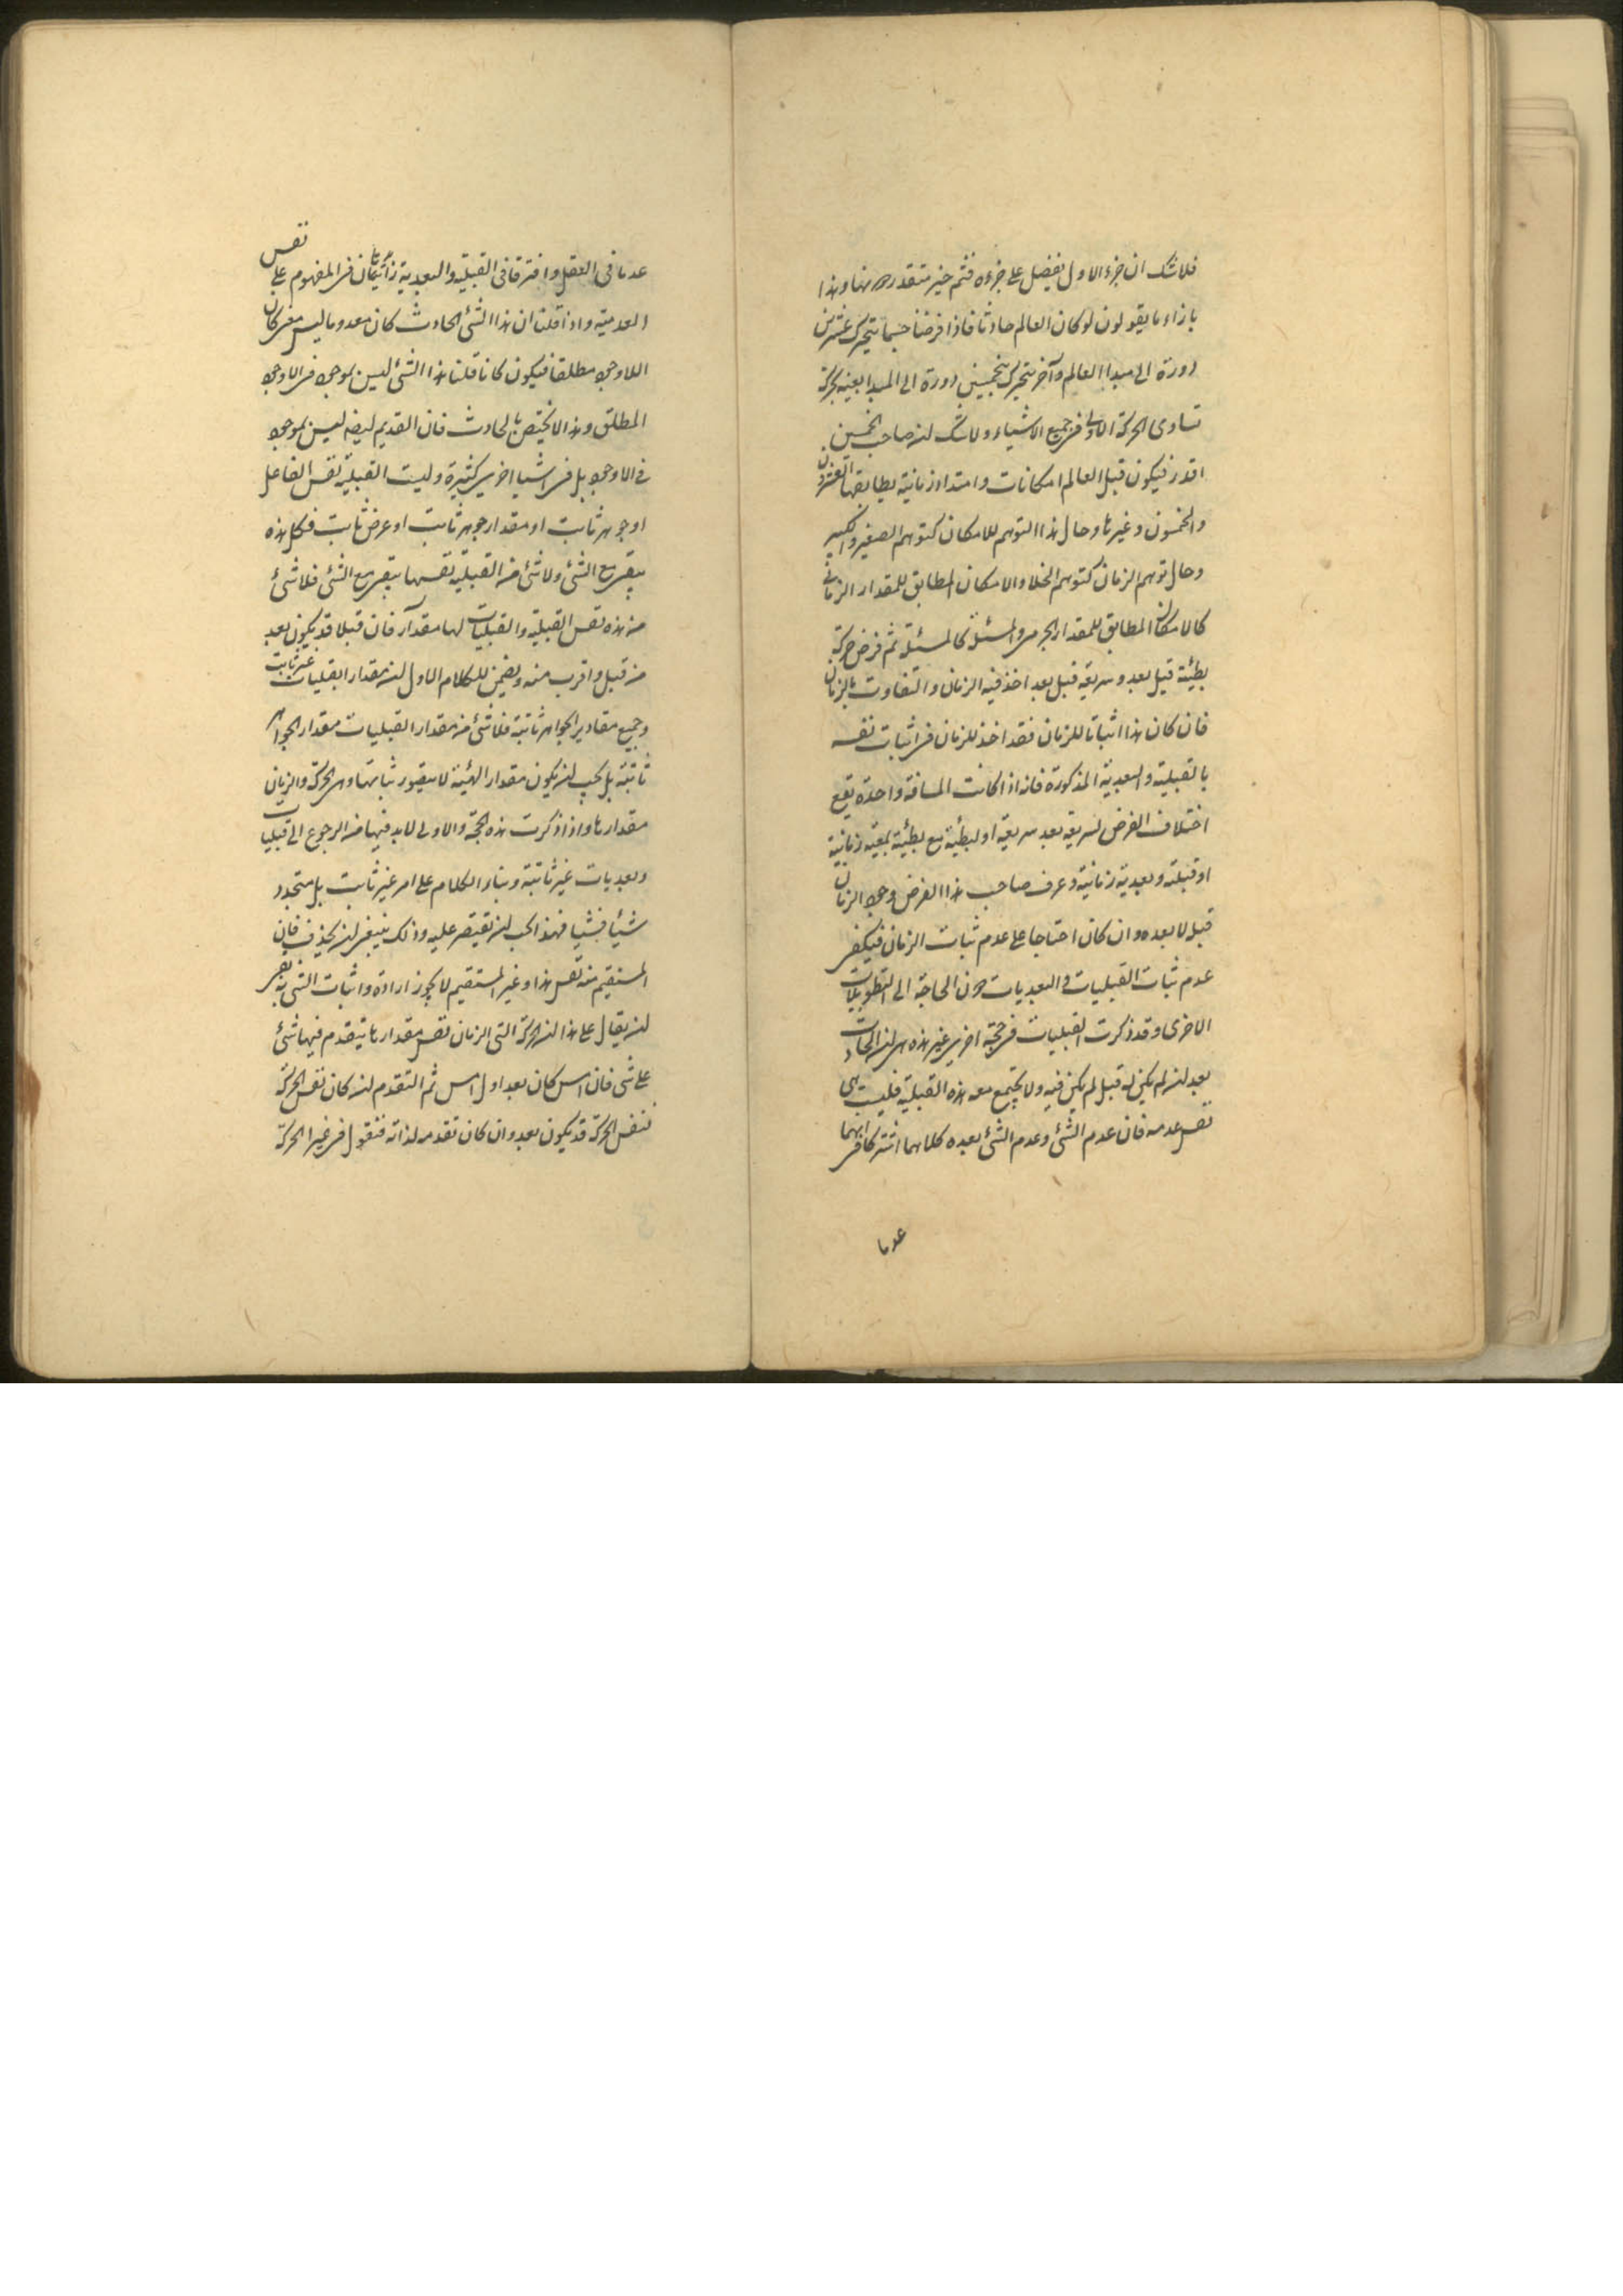 فلا شك ان جزء الاول يفضل على جزءه فثم حيز متقدر وهنا وهذا
بازاء ما يقولون لو كان العالم حادثا فاذا فرضنا جسما يتحرك عشرين
دورة الى مبدا العالم وآخر يتحرك بخمسين دورة الى المبدا بعينه بحركة
تساوى الحركة الاولى فى جميع الاشياء ولا شك ان صاحب الخمسين
اقدر فيكون قبل العالم امكانات وامتداد زمانية يطابقها العشرون
والخمسون وغيرها وحال هذا التوهم للامكان كتوهم الصغير والكبير
وحال توهم الزمان كتوهم الخلا والامكان المطابق للمقدار الزمانى
كالامكان المطابق للمقدار الجرمى والمسئلة كالمسئلة ثم فرض حركة
بطيئة قبل بعد وسريعة قبل بعد اخذ فيه الزمان والتفاوت بالزمان
فان كان هذا اثباتا للزمان فقد اخذ للزمان فى اثبات نفسه
بالقبلية والبعدية المذكورة فانه اذا كانت المسافة واحدة يقع
اختلاف الفرض لسريعة بعد سريعة او لبطيئة مع بطيئة بمعية زمانية
او قبلية وبعدية زمانية وعرف صاحب هذا الفرض وجود الزمان
قبل لا بعده وان كان احتاجا على عدم ثبات الزمان فيكفى
عدم ثبات القبليات والبعديات دون الحاجة الى التطويلات
الاخرى وقد ذكرت القبليات فى حجة اخرى غير هذه هى ان الحادث
بعد ان لم يكن له قبل لم يكن فيه ولا يجتمع معه هذه القبلية فليست هى
نفس عدمه فان عدم الشئ وعدم الشئ بعده كلاهما اشتركا فى انهما
عدما
عدما فى العقل وافترقا فى القبلية والبعدية زائدتان فى المفهوم على نفس
العدمية واذا قلنا ان هذا الشئ الحادث كان معدوما ليس معنى كان
اللاوجود مطلقا فيكون كانا قلنا هذا الشئ ليس بموجود فى اللاوجود
المطلق وهذا لا يختص بالحادث فان القديم ايضا ليس بموجود
فى اللاوجود بل فى اشيا اخرى كثيرة وليست القبلية نفس الفاعل
او جوهر ثابت او مقدار جوهر ثابت او عرض ثابت فكل هذه
يبقى مع الشئ ولا شئ من القبلية نفسها يبقى مع الشئ فلا شئ
من هذه نفس القبلية والقبليات لها مقدار فان قبلا قد يكون ابعد
من قبل واقرب منه ويضمن للكلام الاول ان مقدار القبليات غير ثابت
وجميع مقادير الجواهر ثابتة فلا شئ من مقدار القبليات مقدار الجواهر
ثابتة بل يجب ان يكون مقدار الهيئة لا يتصور ثباتها وهى الحركة والزمان
مقدارها واذا ذكرت هذه الحجة والاولى لا بد فيها من الرجوع الى قبليات
وبعديات غير ثابتة وبناء الكلام على امر غير ثابت بل متجدد
شيأ فشيا فهذا يجب ان يقتصر عليه وذلك ينبغى ان يحذف فان
المستقيم منه نفس هذا وغير المستقيم لا يجوز اراده واثبات الشئ به بقى
ان يقال على هذا ان الحركة التى الزمان نفس مقدارها يتقدم فيها شئ
على شئ فان امس كان بعد اول امس ثم التقدم ان كان نفس الحركة
فنفس الحركة قد يكون بعد وان كان تقدمه لذاته فنقول فى غير الحركة